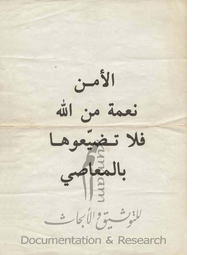 الأمن
نعمة من الله
فلا تضيّعوها
بالمعاصي
للتوثيق والأبحاث
Documentation & Research